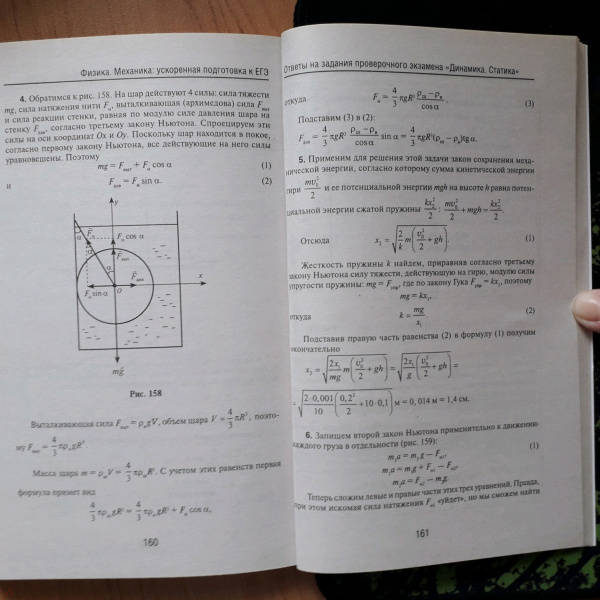 Физика. Механика: ускоренная подготовка к ЕГЭ
4. Обратимся к рис. 158. На шар действуют 4 силы: сила тяжести
mg, сила натяжения нити Fн, выталкивающая (архимедова) сила Fвыт
и сила реакции стенки, равная по модулю силе давления шара на
стенку Fдав, согласно третьему закону Ньютона. Спроецируем эти
силы на оси координат Ox и Oy. Поскольку шар находится в покое,
согласно первому закону Ньютона, все действующие на него силы
уравновешены. Поэтому
mg = Fвыт + Fн cos α (1)
и Fдав = Fн sin α. (2)
y
α F⃗н Fн cos α
F⃗выт
α
α F⃗дав
Fн sin α O x
mg⃗
Рис. 158
Выталкивающая сила Fвыт = ρвgV, объем шара V = 4/3 πR³, поэто-
му Fвыт = 4/3 πρвgR³
Масса шара m = ρшV = 4/3 πρшR³. С учетом этих равенств первая
формула примет вид
4/3 πρшgR³ = 4/3 πρвgR³ + Fн cos α,
160
Ответы на задания проверочного экзамена «Динамика. Статика»
откуда Fн = 4/3 πgR³ (ρш – ρв)/cos α (3)
Подставим (3) в (2):
Fдав = 4/3 πgR³ (ρш – ρв)/cos α sin α = 4/3 πgR³(ρш – ρв)tg α.
5. Применим для решения этой задачи закон сохранения меха-
нической энергии, согласно которому сумма кинетической энергии
гири mv₀²/2 и ее потенциальной энергии mgh на высоте h равна потен-
циальной энергии сжатой пружины kx₂²/2: mv₀²/2 + mgh = kx₂²/2
Отсюда x₂ = √(2/k m (v₀²/2 + gh)). (1)
Жесткость пружины k найдем, приравняв согласно третьему
закону Ньютона силу тяжести, действующую на гирю, модулю силы
упругости пружины: mg = Fупр, где по закону Гука Fупр = kx₁, поэтому
mg = kx₁,
откуда k = mg/x₁ (2)
Подставив правую часть равенства (2) в формулу (1) получим
окончательно
x₂ = √(2x₁/mg m (v₀²/2 + gh)) = √(2x₁/g (v₀²/2 + gh)) =
= √(2·0,001/10 (0,2²/2 + 10·0,1)) м = 0, 014 м = 1,4 см.
6. Запишем второй закон Ньютона применительно к движению
каждого груза в отдельности (рис. 159):
m₁a = m₁g – Fн1, (1)
m₂a = m₂g + Fн1 – Fн2,
m₃a = Fн2 – m₃g.
Теперь сложим левые и правые части этих трех уравнений. Правда,
при этом искомая сила натяжения Fн1 «уйдет», но мы сможем найти
161